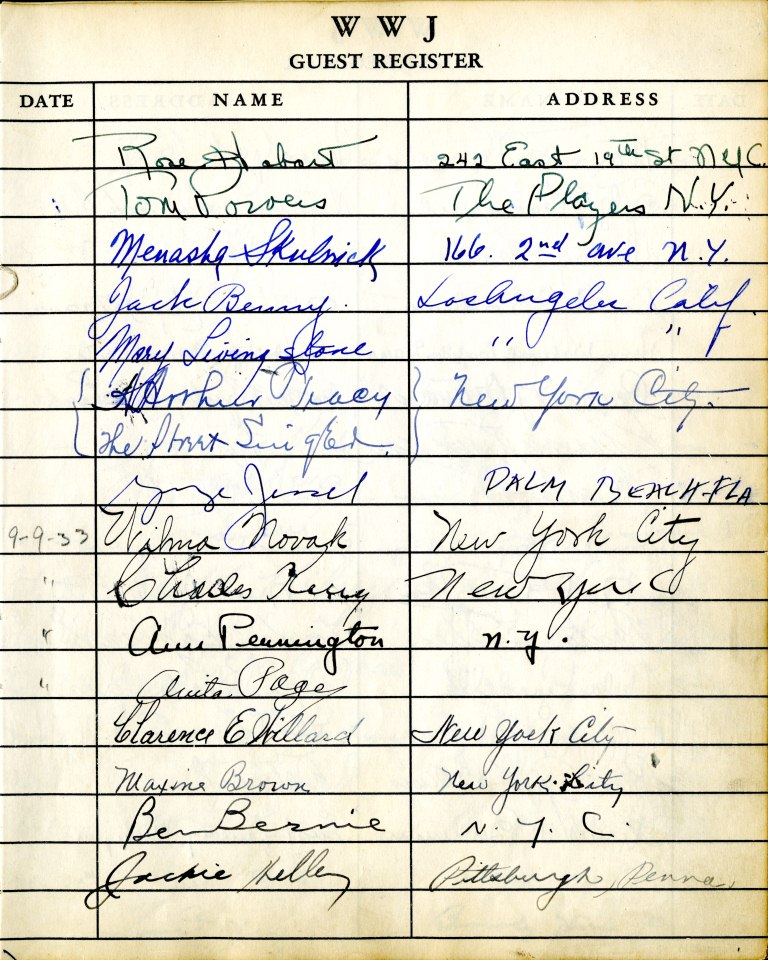 WWJ
GUEST REGISTER
DATE NAME ADDRESS
Rose Hobart 242 East 19th St NYC.
Tom Powers The Players N.Y.
Menasha Skulnick 166. 2nd ave N.Y.
Jack Benny. Los Angeles Calif
Mary Livingstone " "
{ Arthur Tracy } New York City.
{ The Street Singer. }
George Jessel PALM BEACH-FLA
9-9-33 Vilma Novak New York City
" Charles New York
" Ann Pennington n.y.
" Anita Page
Clarence E Willard New York City
Maxine Brown New York City
Ben Bernie N. Y. C.
Jackie Kelley Pittsburgh, Penna.